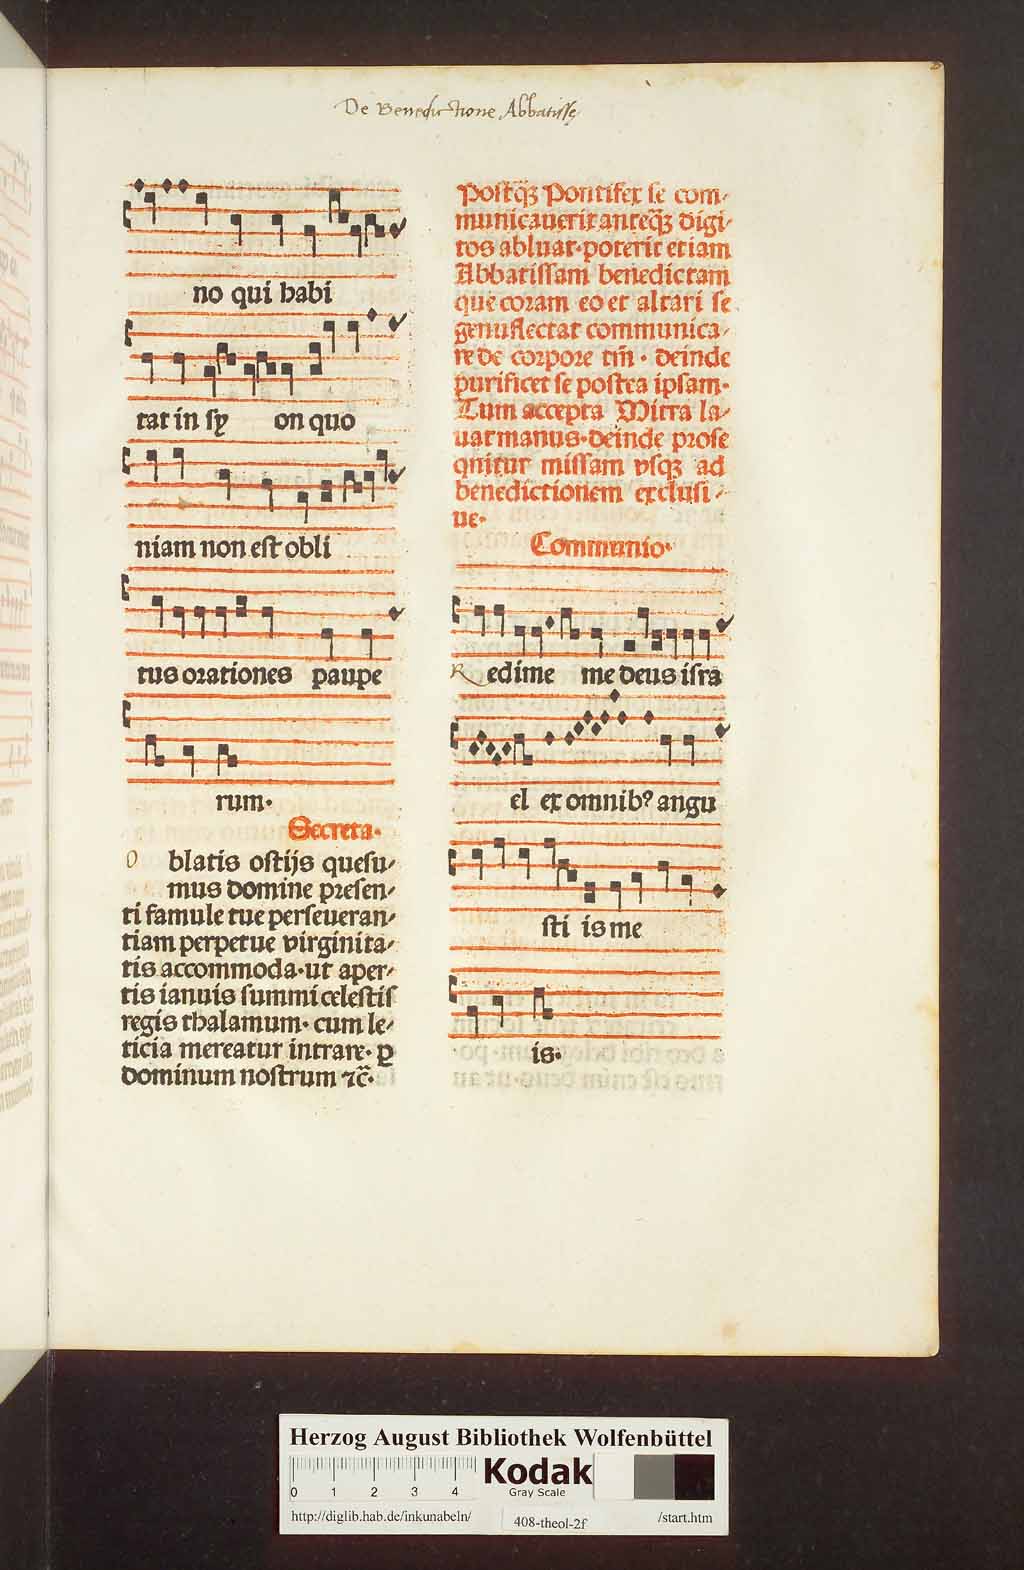 De Benedictione Abbatissę
no qui habi
tat in sy on quo
niam non est obli
tus orationes paupe
rum.
Secreta.
O blatis ostijs quesu-
mus domine presen-
ti famule tue perseueran-
tiam perpetue virginita-
tis accommoda. ut aper-
tis ianuis summi celestis
regis thalamum. cum le-
ticia mereatur intrare. ꝑ
dominum nostrum ⁊c̄.
Postq̄ꝫ Pontifex se com-
municauerit anteq̄ꝫ digi-
tos abluat. poterit etiam
Abbatissam benedictam
que coram eo et altari se
genuflectat communica-
re de corpore tm̄. deinde
purificet se postea ipsam.
Tum accepta Mitra la-
uat manus. deinde prose
quitur missam vsqꝫ ad
benedictionem exclusi-
ue.
Communio.
R edime me deus isra
el ex omnibꝰ angu
sti is me
is.
Herzog August Bibliothek Wolfenbüttel
0 1 2 3 4
Kodak
Gray Scale
http://diglib.hab.de/inkunabeln/ 408-theol-2f /start.htm